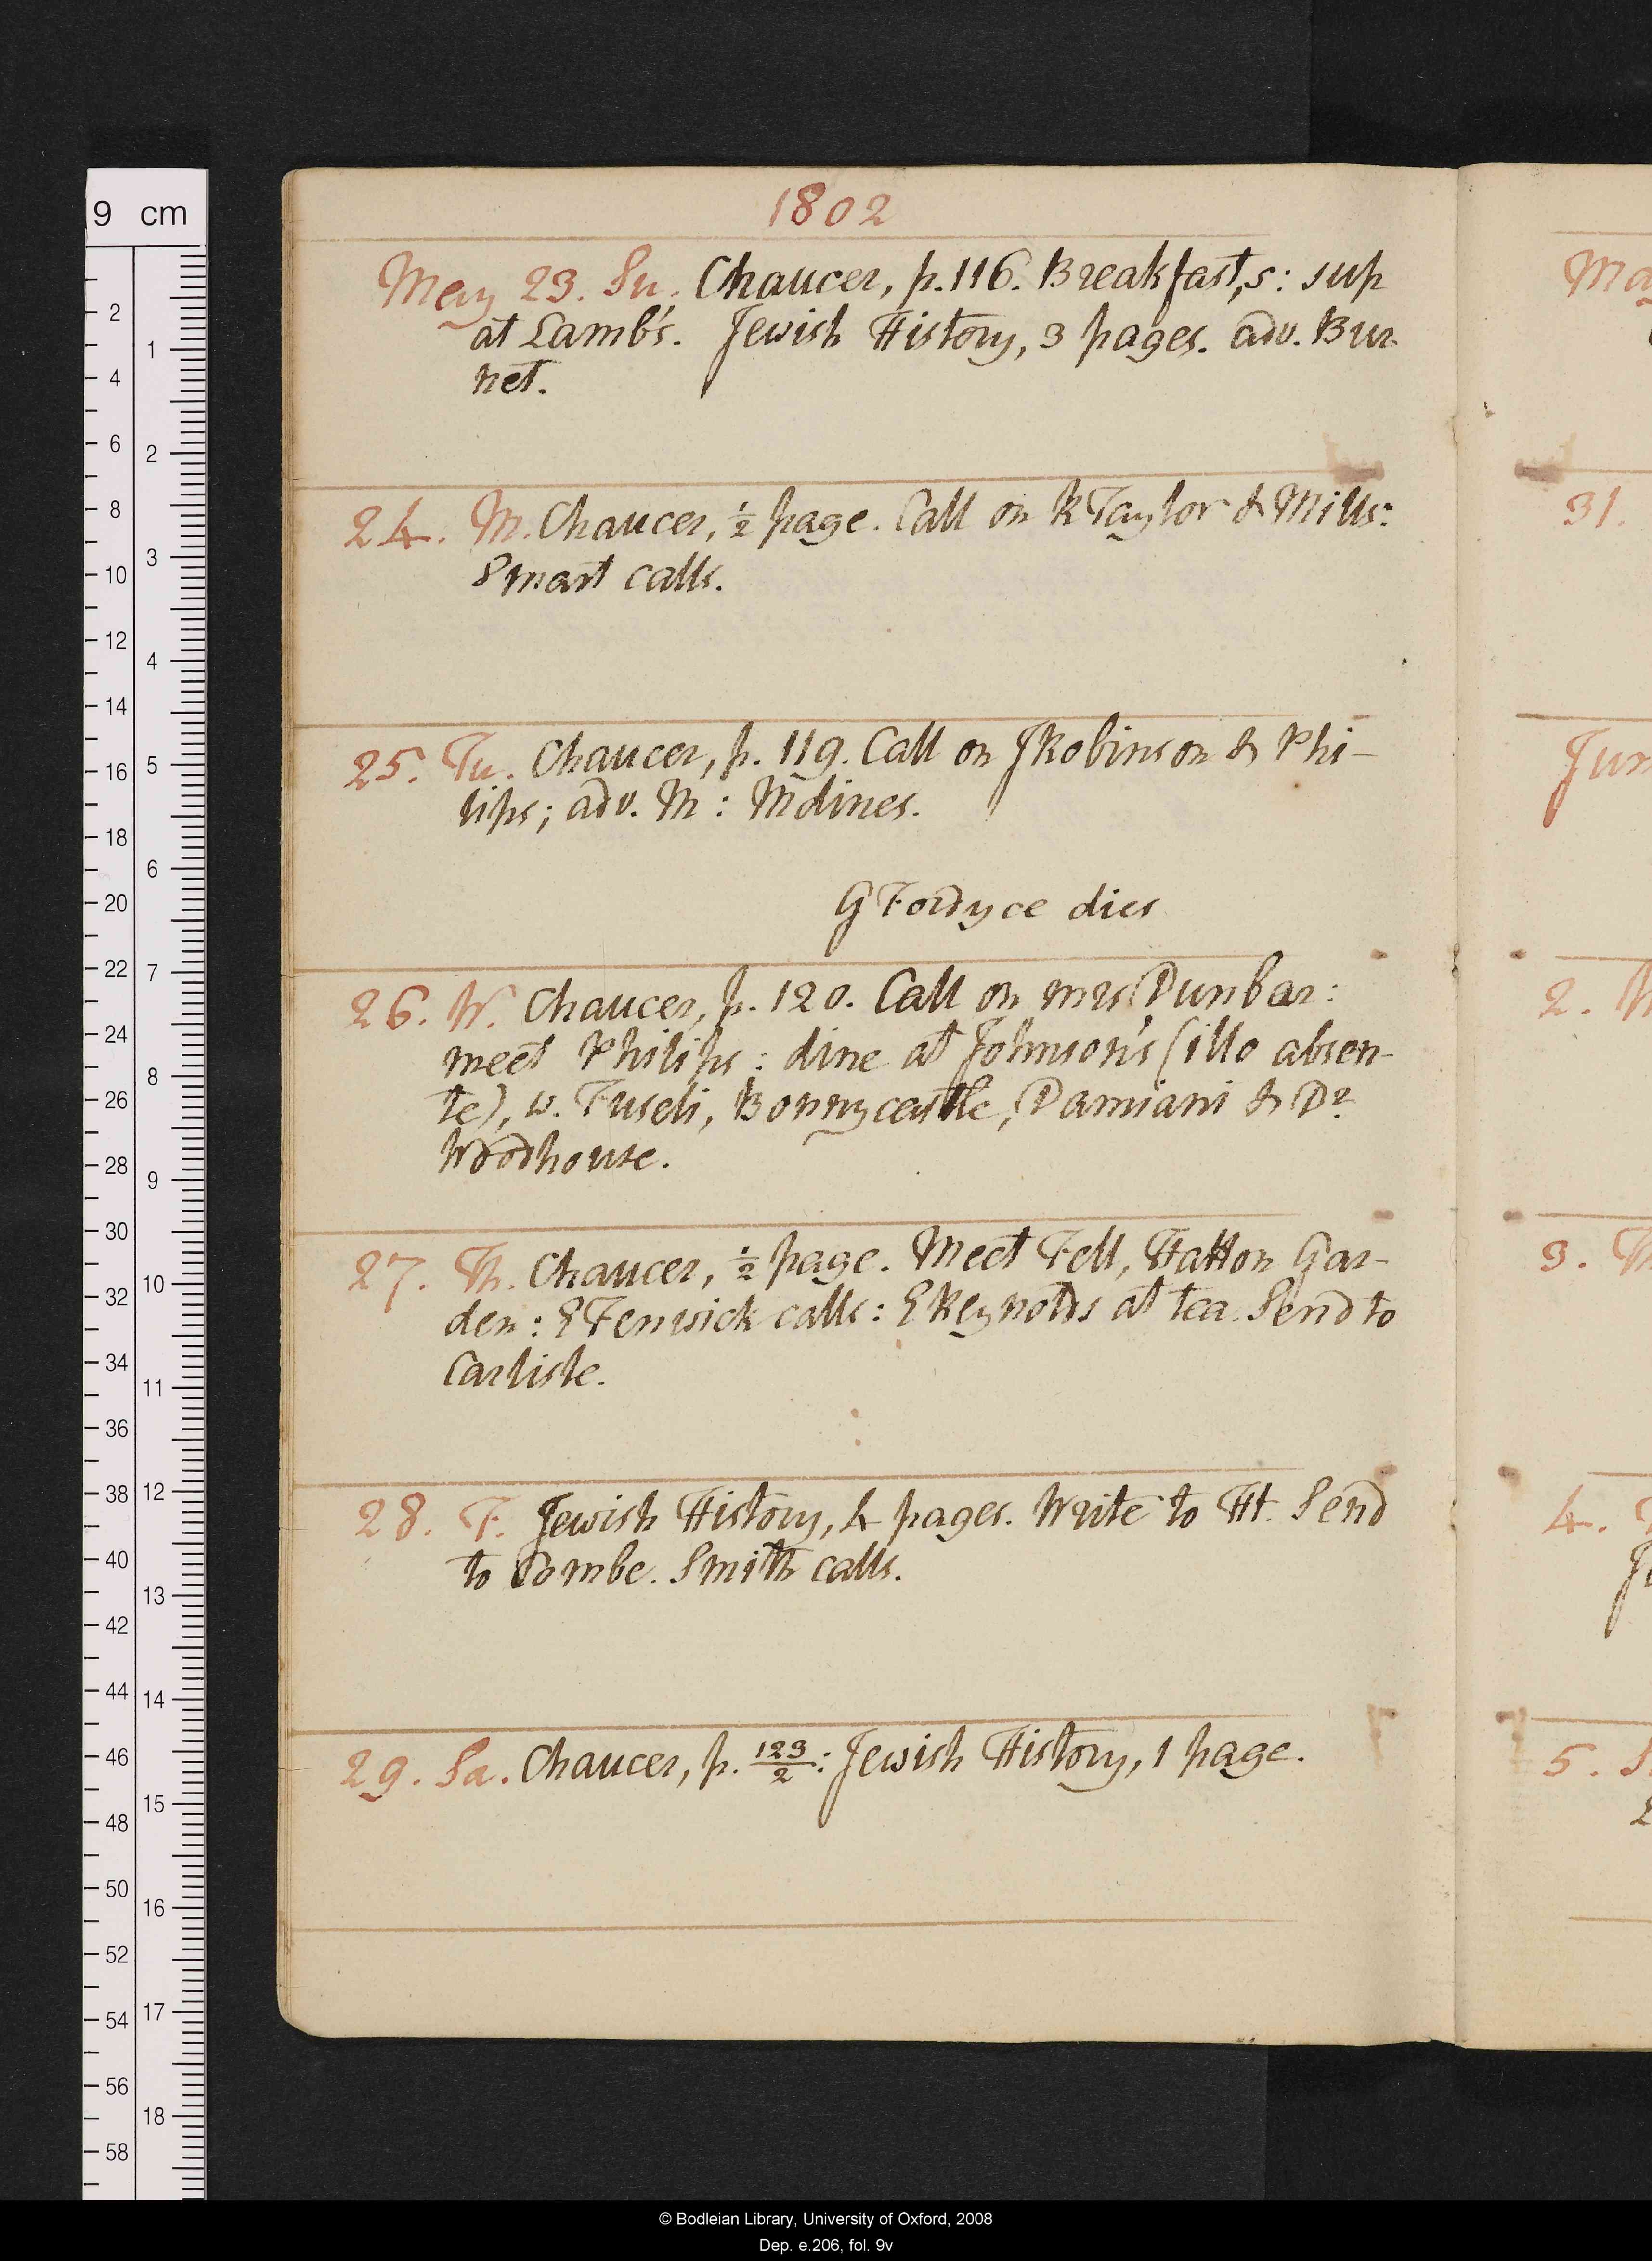 1802
May 23. Su. Chaucer, p. 116. Breakfast, s: sup
at Lamb's. Jewish History, 3 pages. adv. Bur-
net.
24. M. Chaucer, ½ page. Call on R Taylor & Mills:
Smart calls.
25. Tu. Chaucer, p. 119. Call on J Robinson & Phi-
lips; adv. M: M dines.
G Fordyce dies
26. W. Chaucer, p. 120. Call on mrs Dunbar:
meet Philips: dine at Johnson's (illo absen-
te), w. Fuseli, Bonnycastle, Damiani & Dr
Woodhouse.
27. Th. Chaucer, ½ page. Meet Fell, Hatton Gar-
den: E Fenwick calls: E Reynolds at tea. Send to
Carlisle.
28. F. Jewish History, 4 pages. Write to Ht. Send
to Combe. Smith calls.
29. Sa. Chaucer, p. 123/2: Jewish History, 1 page.
Ma
31.
Jun
2.
3.
4.
5.
9 cm
2
4
6
8
10
12
14
16
18
20
22
24
26
28
30
32
34
36
38
40
42
44
46
48
50
52
54
56
58
1
2
3
4
5
6
7
8
9
10
11
12
13
14
15
16
17
18
© Bodleian Library, University of Oxford, 2008
Dep. e.206, fol. 9v